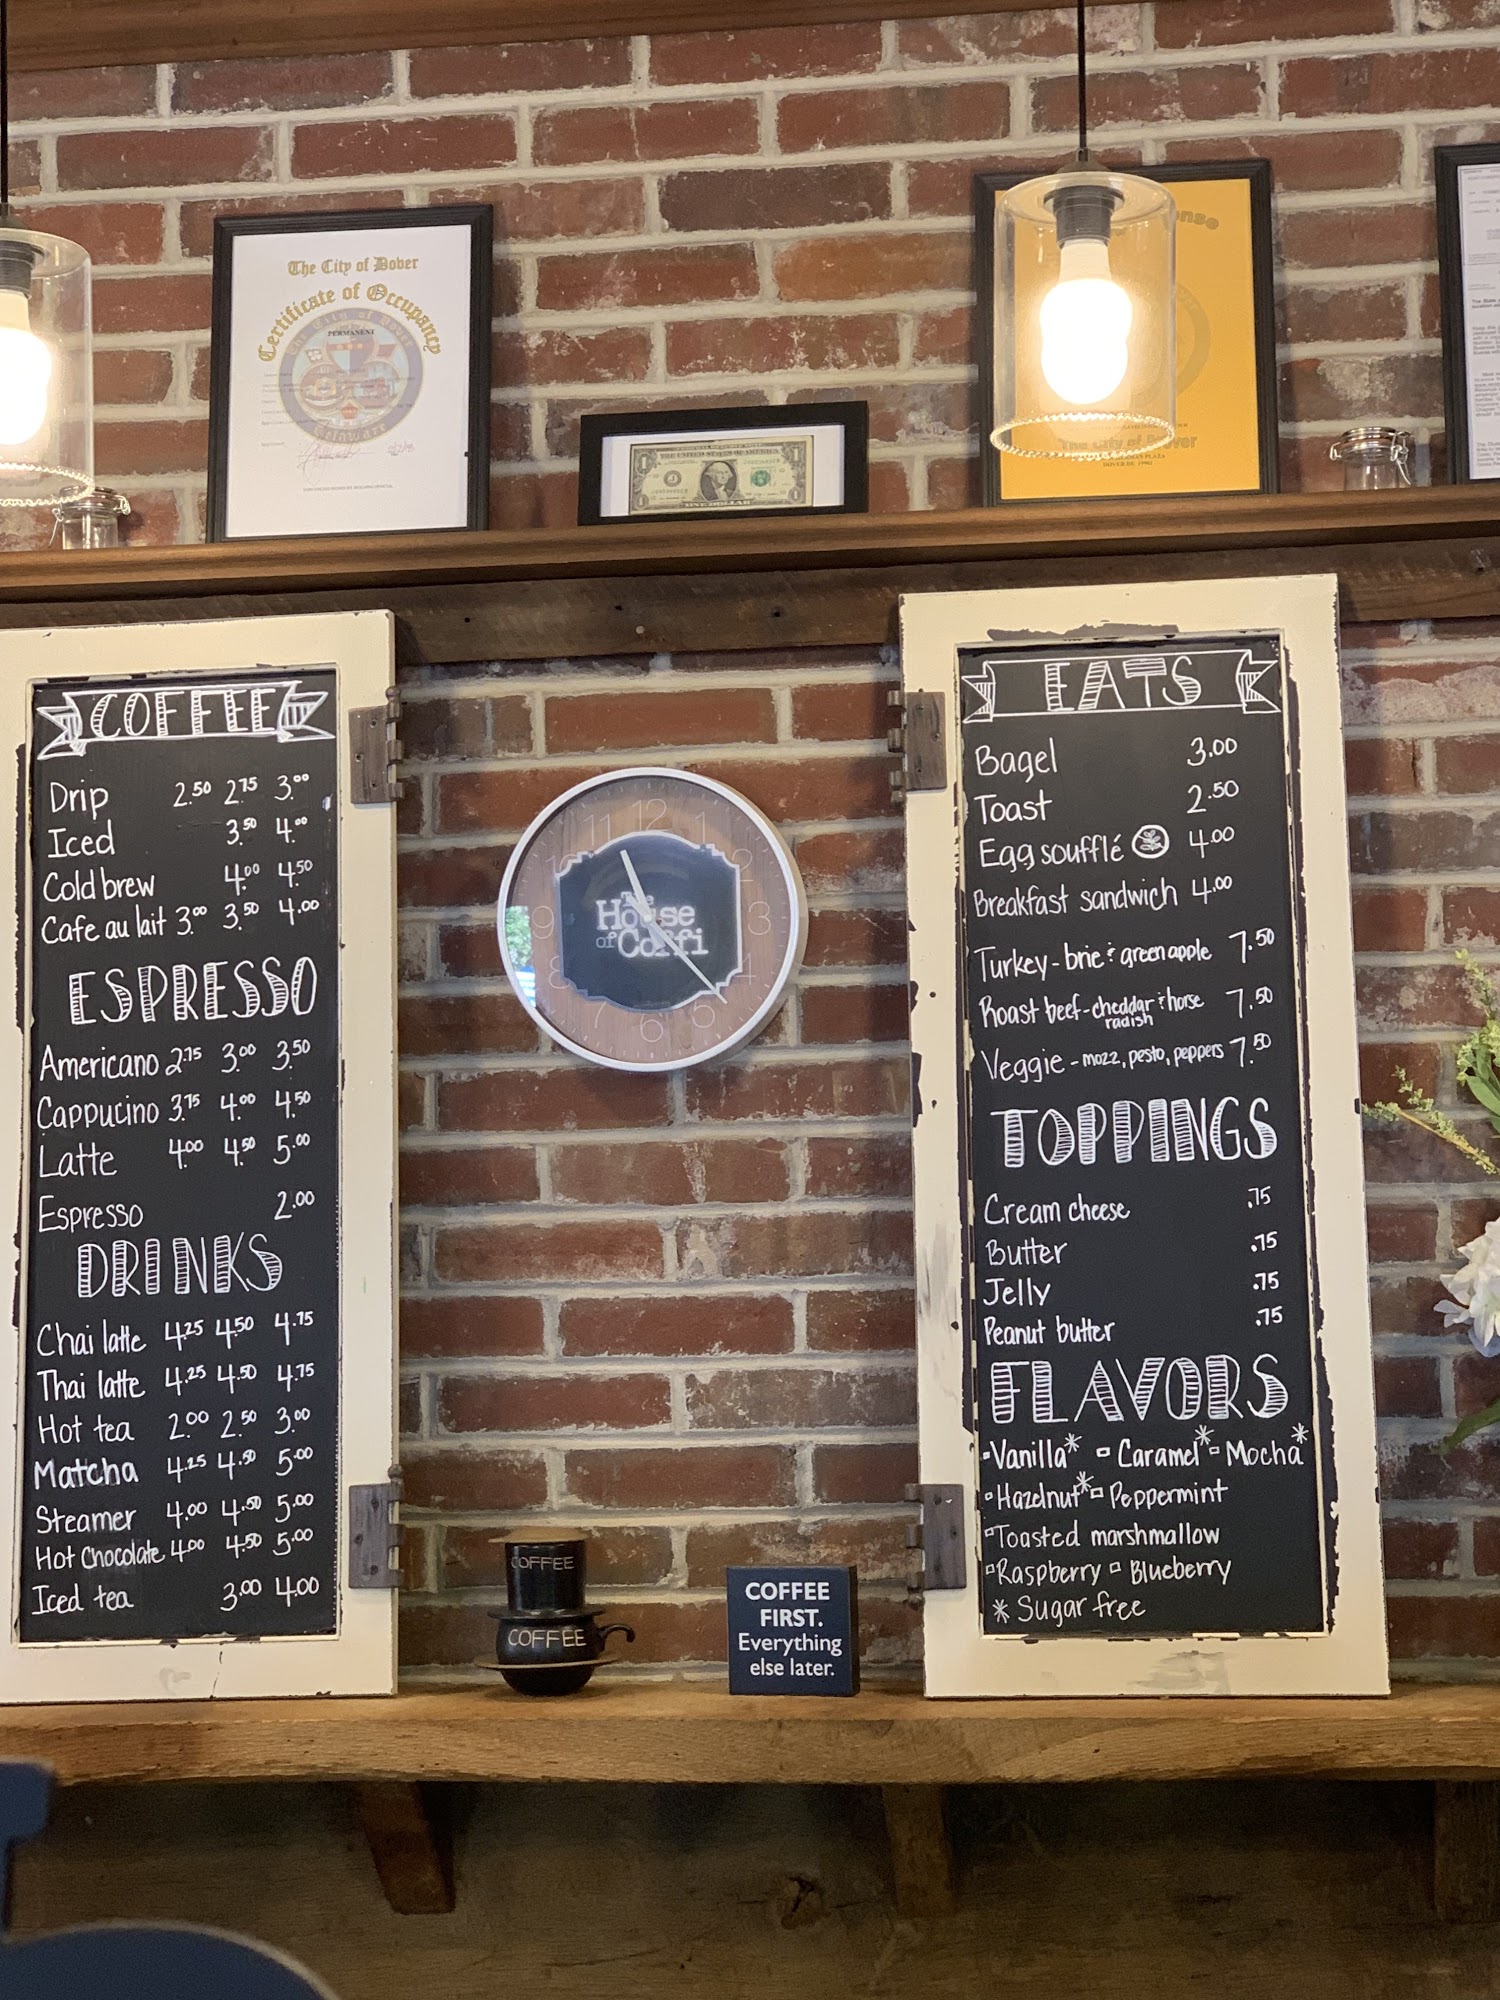 The City of Dover
Certificate of Occupancy
PERMANENT
The City of Dover
Delaware
THE UNITED STATES OF AMERICA
ONE DOLLAR
The City of Dover
DOVER DE 19901
COFFEE
Drip 2.50 2.75 3.00
Iced 3.50 4.00
Cold brew 4.00 4.50
Cafe au lait 3.00 3.50 4.00
ESPRESSO
Americano 2.75 3.00 3.50
Cappucino 3.75 4.00 4.50
Latte 4.00 4.50 5.00
Espresso 2.00
DRINKS
Chai latte 4.25 4.50 4.75
Thai latte 4.25 4.50 4.75
Hot tea 2.00 2.50 3.00
Matcha 4.25 4.50 5.00
Steamer 4.00 4.50 5.00
Hot Chocolate 4.00 4.50 5.00
Iced tea 3.00 4.00
12
11 1
10 2
9 3
8 4
7 5
6
The
House
of Coffi
COFFEE
COFFEE
COFFEE
FIRST.
Everything
else later.
EATS
Bagel 3.00
Toast 2.50
Egg soufflé 4.00
Breakfast sandwich 4.00
Turkey - brie & green apple 7.50
Roast beef - cheddar & horse 7.50
radish
Veggie - mozz, pesto, peppers 7.50
TOPPINGS
Cream cheese .75
Butter .75
Jelly .75
Peanut butter .75
FLAVORS
Vanilla* Caramel* Mocha*
Hazelnut* Peppermint
Toasted marshmallow
Raspberry Blueberry
* Sugar free